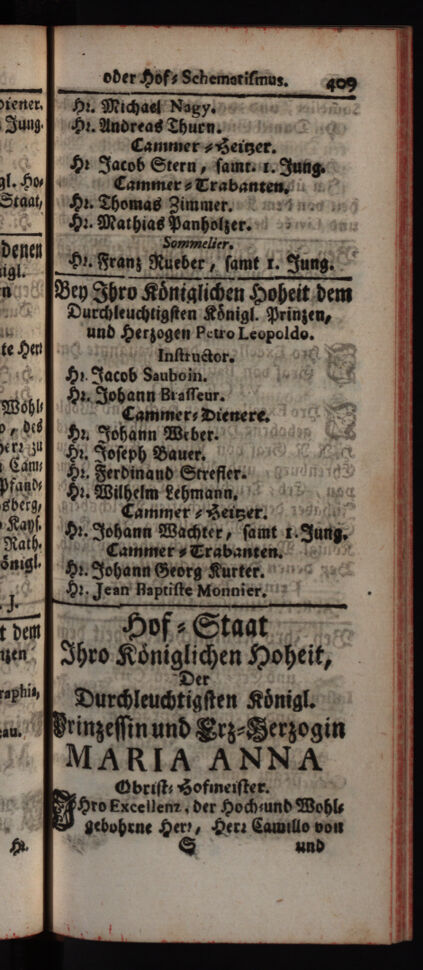 oder Hof-Schematismus. 409
Hr. Michael Nagy.
Hr. Andreas Thurn.
Cammer-Heitzer.
Hr Jacob Stern, samt. 1. Jung.
Cammer-Trabanten.
Hr. Thomas Zimmer.
Hr. Mathias Panholzer.
Sommelier.
Hr. Franz Rueber, samt 1. Jung.
Bey Ihro Königlichen Hoheit dem
Durchleuchtigsten Königl. Prinzen,
und Herzogen Petro Leopoldo.
Instructor.
Hr. Jacob Sauboin.
Hr. Johann Brasseur.
Cammer-Dienere.
Hr. Johann Weber.
Hr. Joseph Bauer.
Hr. Ferdinand Strefler.
Hr. Wilhelm Lehmann.
Cammer-Heitzer.
Hr. Johann Wachter, samt 1. Jung.
Cammer-Trabanten.
Hr. Johann Georg Kurter.
Hr. Jean Baptiste Monnier.
Hof-Staat
Ihro Königlichen Hoheit,
Der
Durchleuchtigsten Königl.
Prinzessin und Erz-Herzogin
MARIA ANNA
Obrist-Hofmeister.
IHro Excellenz, der Hoch-und Wohl-
gebohrne Herr, Herr Camillo von
S und